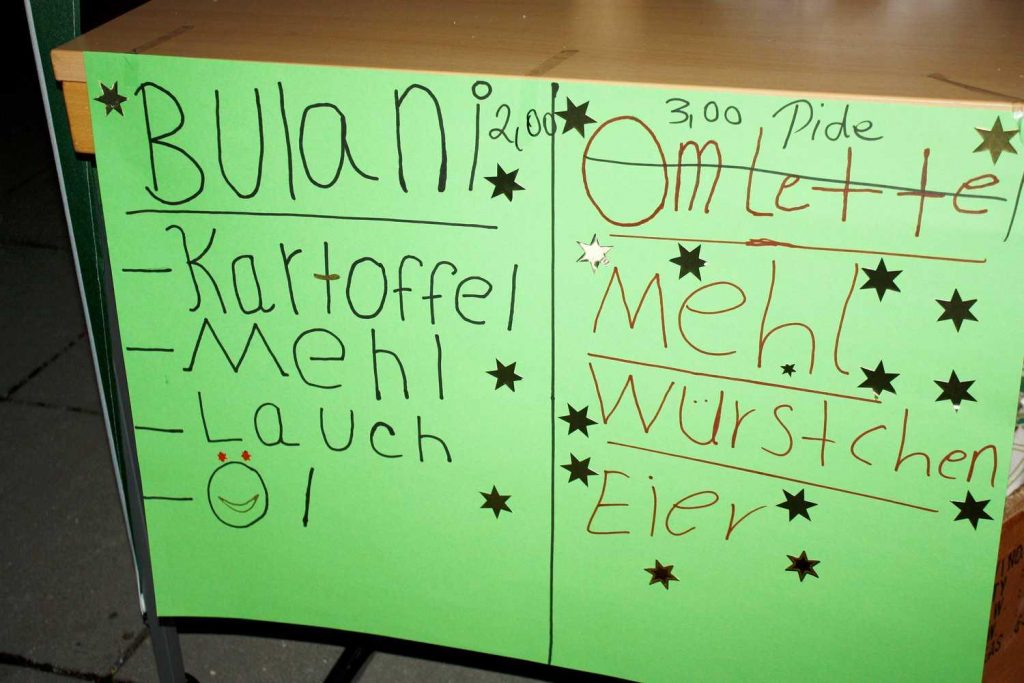 Bulani 2,00
- Kartoffel
- Mehl
- Lauch
- Öl
3,00 Pide
Omlette
Mehl
Würstchen
Eier